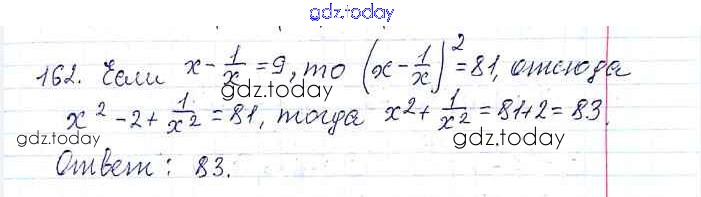 gdz.today
162. Если x - 1/x = 9, то (x - 1/x)² = 81, отсюда
gdz.today
x² - 2 + 1/x² = 81, тогда x² + 1/x² = 81+2 = 83.
gdz.today gdz.today
Ответ: 83.